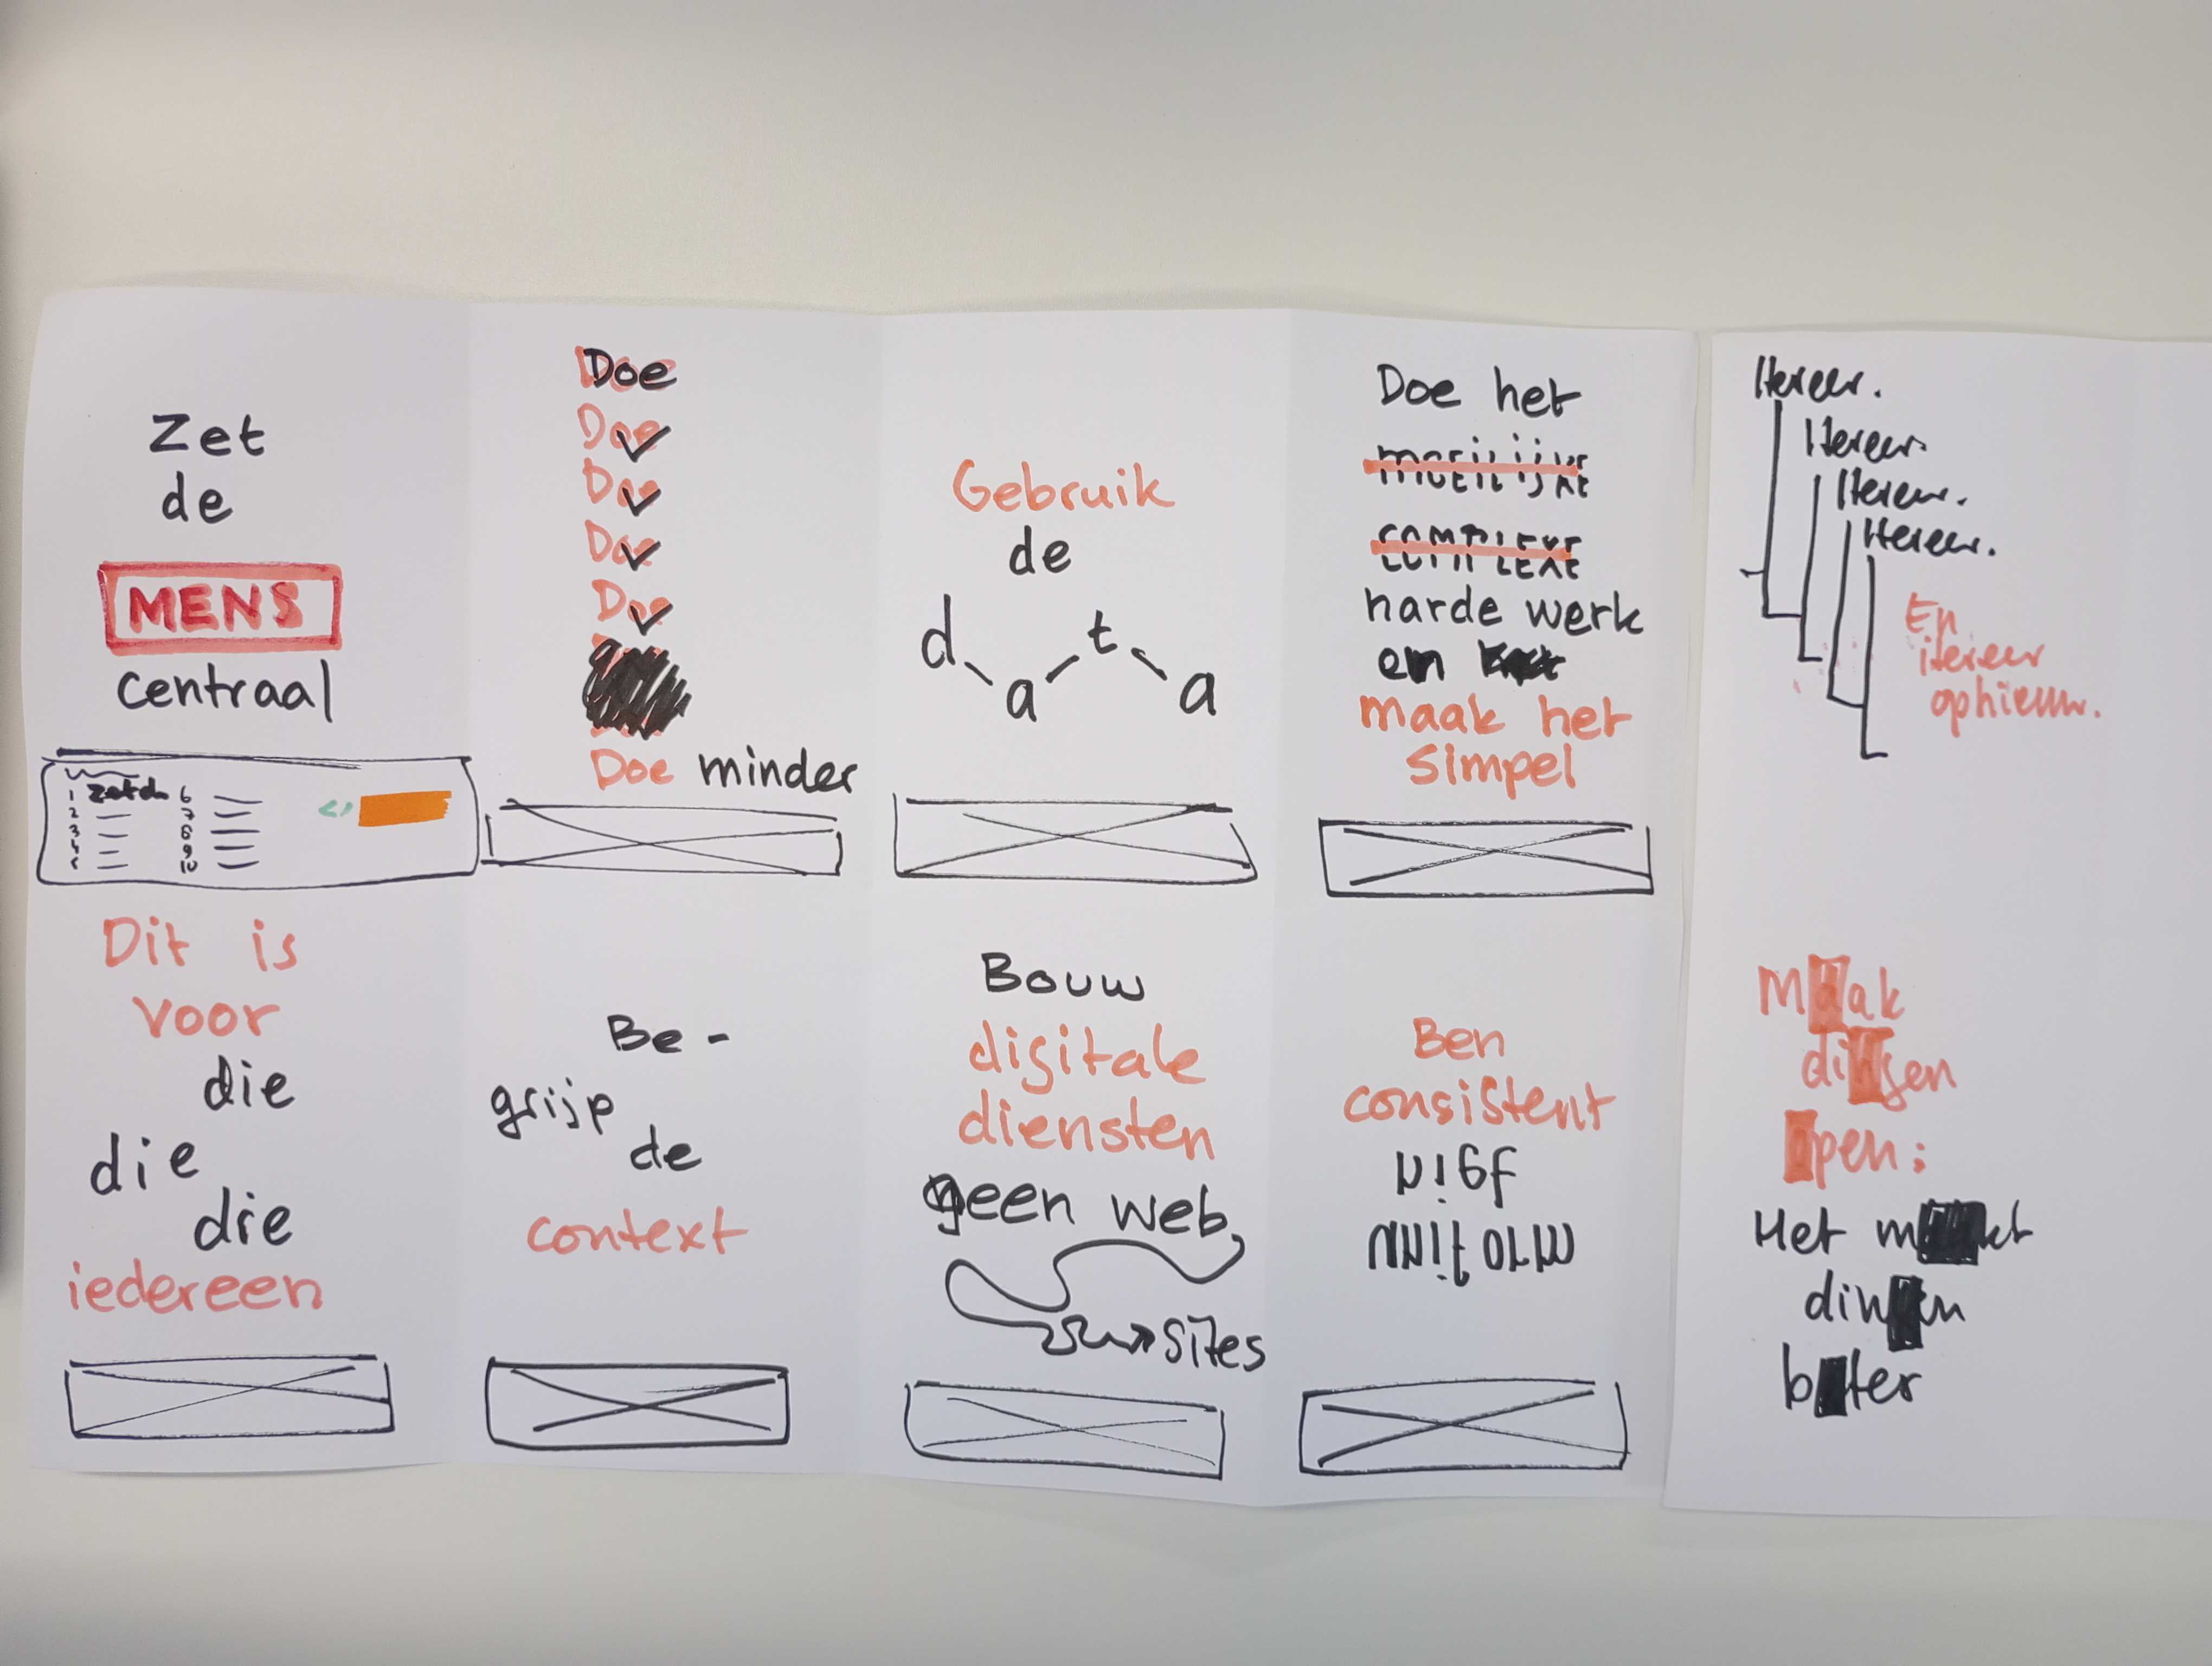 Zet
de
MENS
centraal
1 zet de 6
2 7
3 8
4 9
5 10
Doe
Doe
Doe
Doe
Doe
Doe minder
Gebruik
de
data
Doe het
moeilijke
complexe
harde werk
en
maak het
simpel
Itereer.
Itereer.
Itereer.
Itereer.
En
itereer
opnieuw.
Dit is
voor
die
die
die
iedereen
Be-
grijp
de
context
Bouw
digitale
diensten
geen web
sites
Ben
consistent
niet
uniform
Maak
dingen
open:
Het maakt
dingen
beter